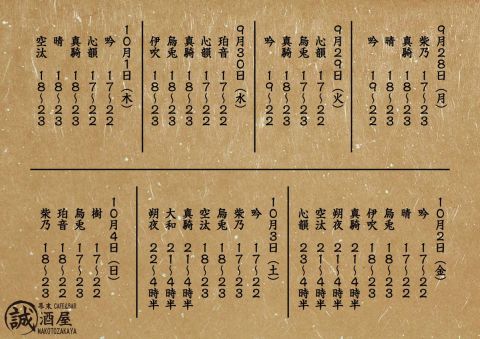 9月28日（月）
柴乃 17～23
真騎 18～23
晴 17～22
吟 19～22
9月29日（火）
心韻 17～22
烏兎 17～23
真騎 18～23
吟 19～22
9月30日（水）
珀音 17～22
心韻 17～22
真騎 18～23
烏兎 18～23
伊吹 18～23
10月1日（木）
心韻 17～22
真騎 17～22
晴 18～23
空汰 18～23
10月2日（金）
吟 17～22
晴 17～22
烏兎 18～23
伊吹 18～23
真騎 21～4時半
朔夜 21～4時半
空汰 21～4時半
心韻 22～4時半
10月3日（土）
吟 17～22
柴乃 17～23
烏兎 18～23
空汰 18～23
真騎 21～4時半
大和 21～4時半
朔夜 22～4時半
10月4日（日）
樹 17～22
烏兎 17～23
珀音 18～22
柴乃 18～23
幕末 CAFE&BAR
誠酒屋
MAKOTOZAKAYA